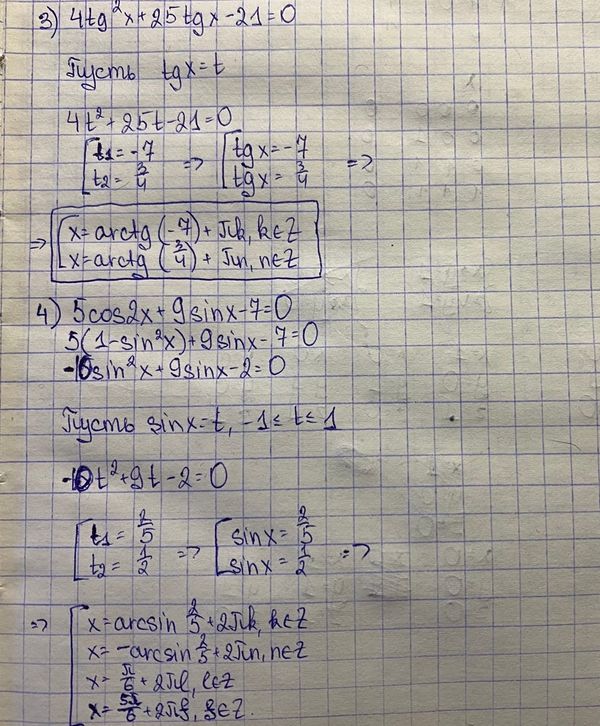 3) 4tg²x+25tgx-21=0
Пусть tgx=t
4t²+25t-21=0
[t1=-7 => [tgx=-7
t2=3/4 tgx=3/4 =>
=> [x=arctg(-7)+πk, k∈Z
x=arctg(3/4)+πn, n∈Z
4) 5cos2x+9sinx-7=0
5(1-sin²x)+9sinx-7=0
-10sin²x+9sinx-2=0
Пусть sinx=t, -1≤t≤1
-10t²+9t-2=0
[t1=2/5 => [sinx=2/5
t2=1/2 sinx=1/2 =>
=> [x=arcsin 2/5+2πk, k∈Z
x=-arcsin 2/5+2πn, n∈Z
x=π/6+2πl, l∈Z
x=5π/6+2πg, g∈Z.